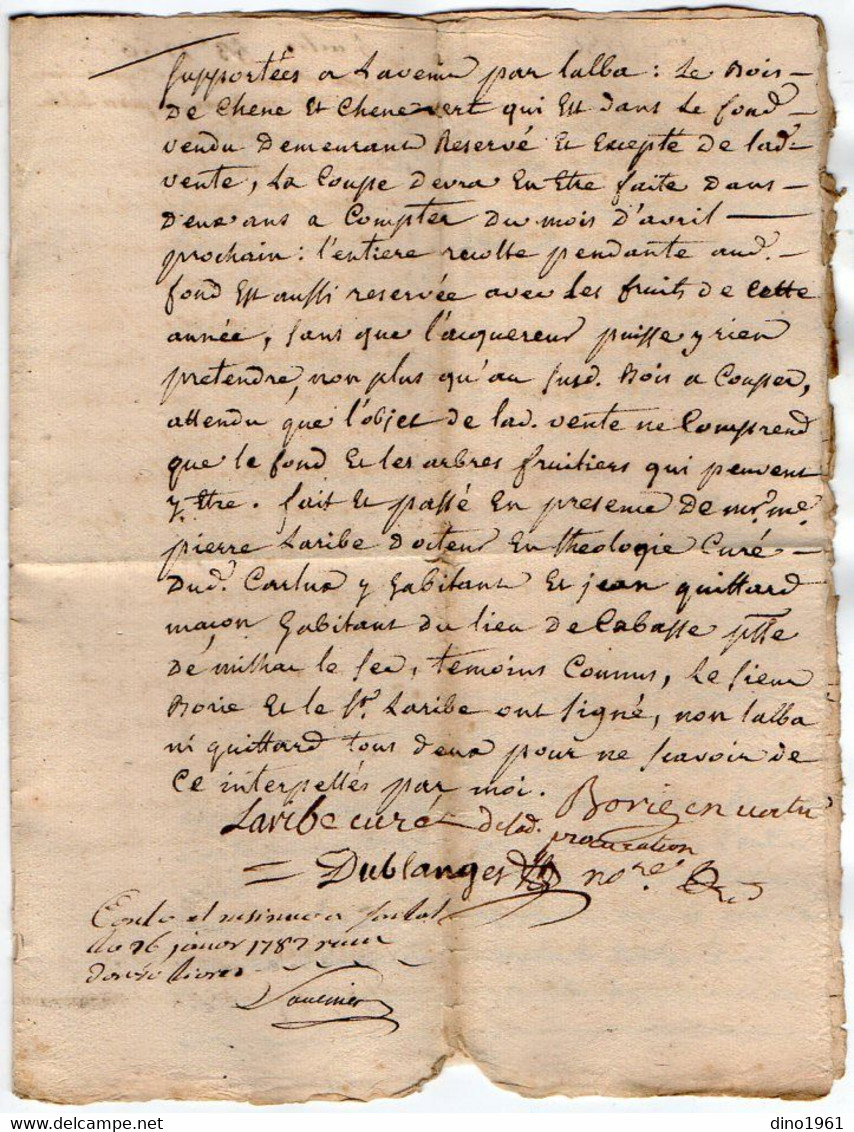 supportées a Lavenir par Lalba : Le Bois
De Chene Et Chene vert qui Est dans Le fond
vendu Demeurant Reservé Et Excepté de lad.
vente, La Coupe devra En Etre faite dans
Deux ans a Compter Du mois D'avril
prochain : l'entiere recolte pendante aud.
fond Est aussi reservée avec Les fruits de Cette
année, sans que l'acquereur puisse y rien
pretendre, non plus qu'au susd. Bois a Couper,
attendu que l'objet de lad. vente ne Comprend
que le fond Et les arbres fruitiers qui peuvent
y Etre. fait Et passé En presence De mr. me.
pierre Laribe Docteur En theologie Curé
Dud. Carlux y habitant Et jean quittard
maçon habitant du lieu de Cabasse psse
De milhac le sec, temoins Connus, Le sieur
Borie Et le sr. Laribe ont signé, non Lalba
ni quittard tous deux pour ne scavoir de
Ce interpellés par moi.
Laribe curé Borie en vertu
Delad. procuration
Dublanger nore.
du 26 janvier 1787
livres
dino1961